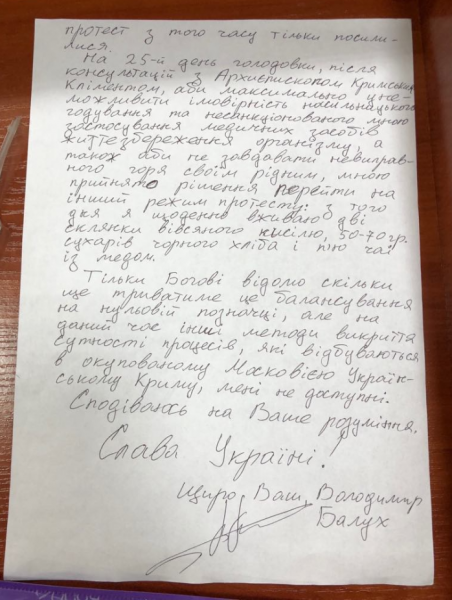 протест з того часу тільки посили-
лися.
На 25-й день голодовки, після
консультацій з Архиєпископом Кримським
Кліментом, аби максимально уне-
можливити імовірність насильницького
годування та несанкціонованого мною
застосування медичних засобів
життєзбереження організму, а
також аби не завдавати невиправ-
ного горя своїм рідним, мною
прийнято рішення перейти на
інший режим протесту: з того
дня я щоденно вживаю дві
склянки вівсяного кисілю, 50-70 гр.
сухарів чорного хліба і п'ю чай
із медом.
Тільки Богові відомо скільки
ще триватиме це балансування
на нульовій позначці, але на
даний час інші методи викриття
сутності процесів, які відбуваються
в окупованому Московією Україн-
ському Криму, мені не доступні.
Сподіваюсь на Ваше розуміння.
Слава Україні!
Щиро Ваш, Володимир
Балух